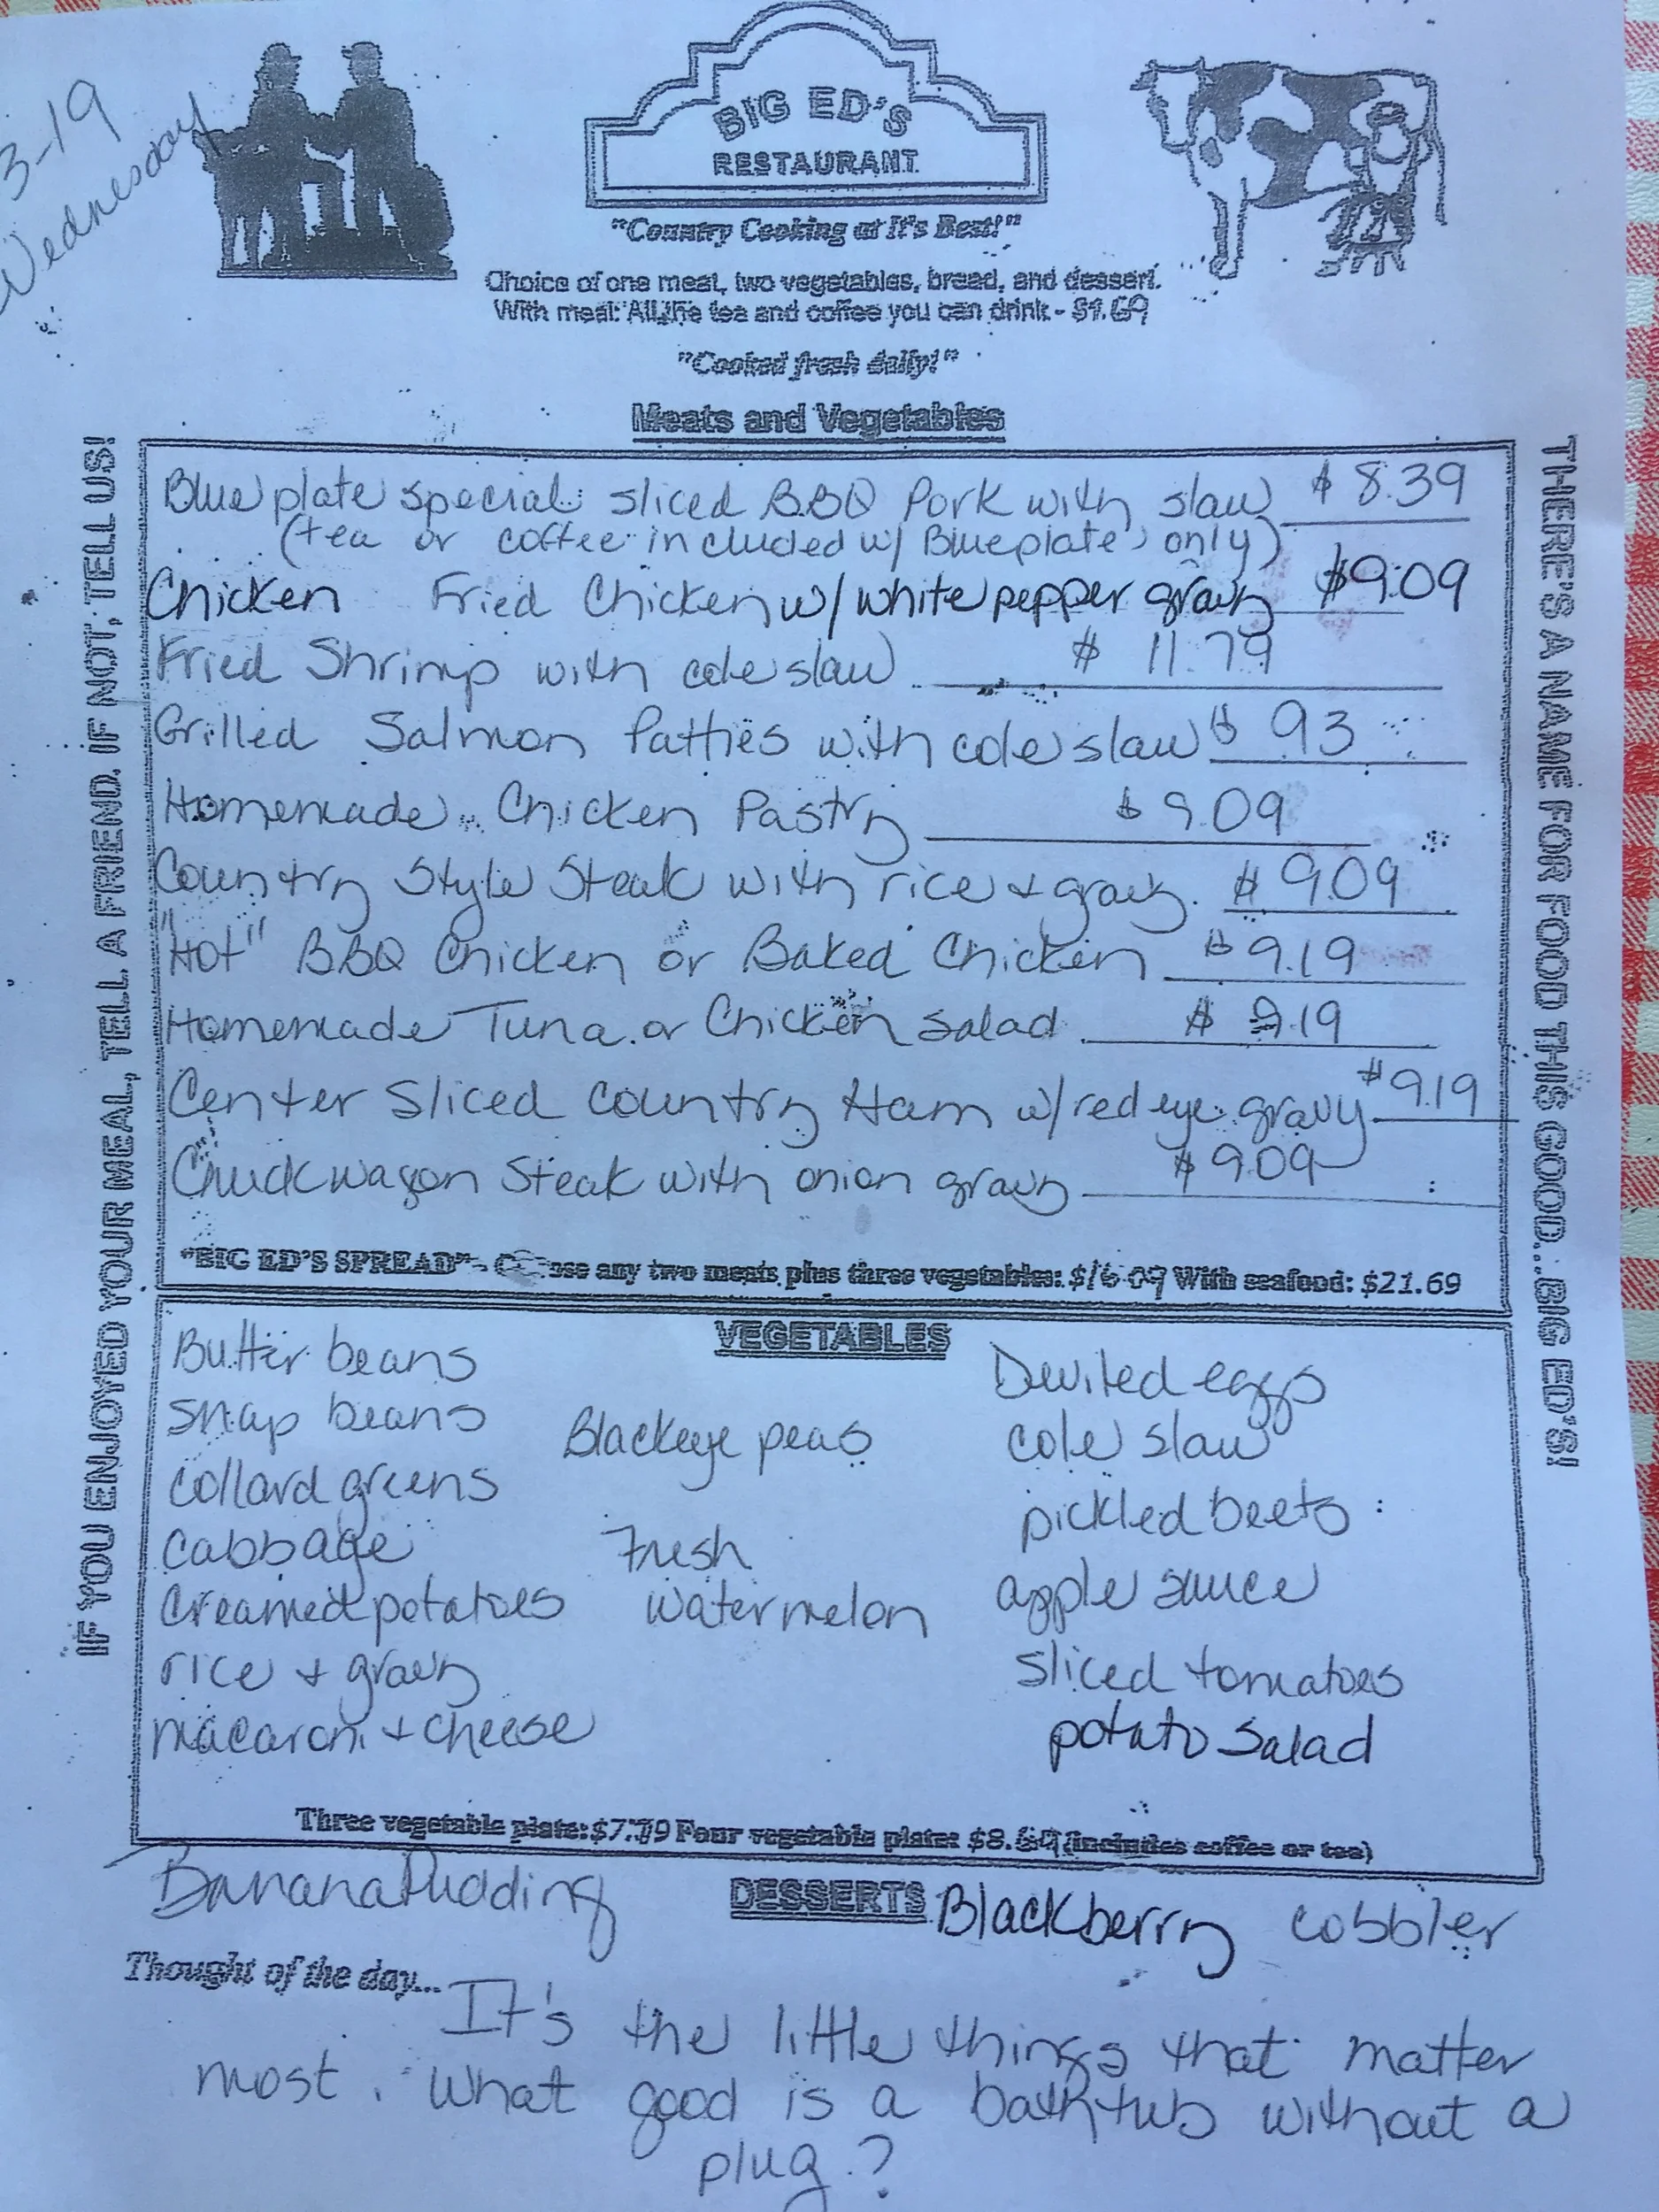 3-19
Wednesday
BIG ED'S
RESTAURANT
"Country Cooking at It's Best!"
Choice of one meat, two vegetables, bread, and dessert.
With meal: All the tea and coffee you can drink - $1.69
"Cooked fresh daily!"
Meats and Vegetables
IF YOU ENJOYED YOUR MEAL, TELL A FRIEND. IF NOT, TELL US!
Blue plate special: sliced BBQ Pork with slaw $8.39
(tea or coffee included w/ Blueplate only)
Chicken Fried Chicken w/ white pepper gravy $9.09
Fried Shrimp with cole slaw $11.79
Grilled Salmon Patties with cole slaw $ 93
Homemade Chicken Pastry $9.09
Country Style Steak with rice + gravy. $9.09
"Hot" BBQ Chicken or Baked Chicken $9.19
Homemade Tuna or Chicken Salad $9.19
Center Sliced Country Ham w/ red eye gravy $9.19
Chuckwagon Steak with onion gravy $9.09
"BIG ED'S SPREAD" - Choose any two meats plus three vegetables: $16.09 With seafood: $21.69
THERE'S A NAME FOR FOOD THIS GOOD...BIG ED'S!
VEGETABLES
Butter beans
snap beans
collard greens
cabbage
creamed potatoes
rice + gravy
macaroni + cheese
Blackeye peas
Fresh
watermelon
Deviled eggs
cole slaw
pickled beets
apple sauce
sliced tomatoes
potato salad
Three vegetable plate: $7.79 Four vegetable plate: $8.69 (includes coffee or tea)
Banana Pudding DESSERTS Blackberry cobbler
Thought of the day... It's the little things that matter
most. What good is a bathtub without a
plug?